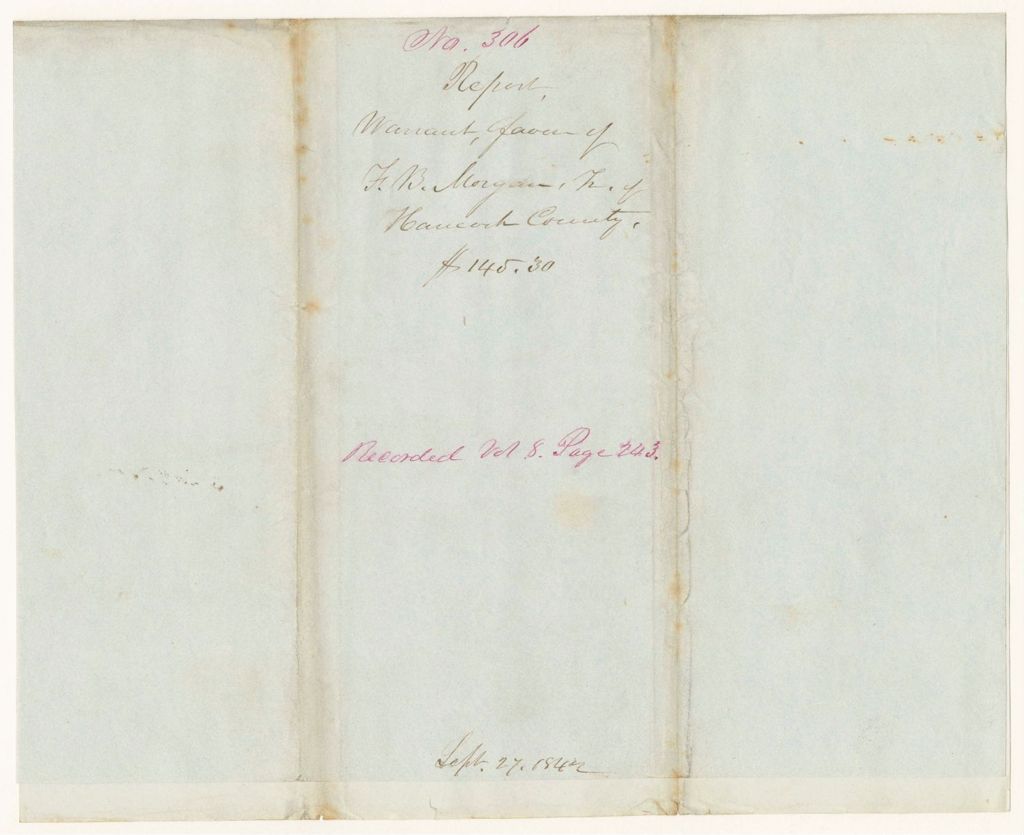 No. 306
Report,
Warrant, favor of
F. B. Morgan, Tr. of
Hancock County.
$145.30
Recorded Vol 8. Page 243.
Sept. 27. 1842